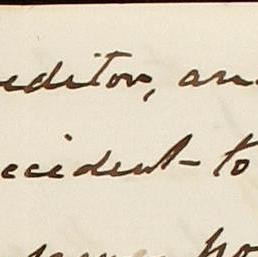 editor, an
ccident - to